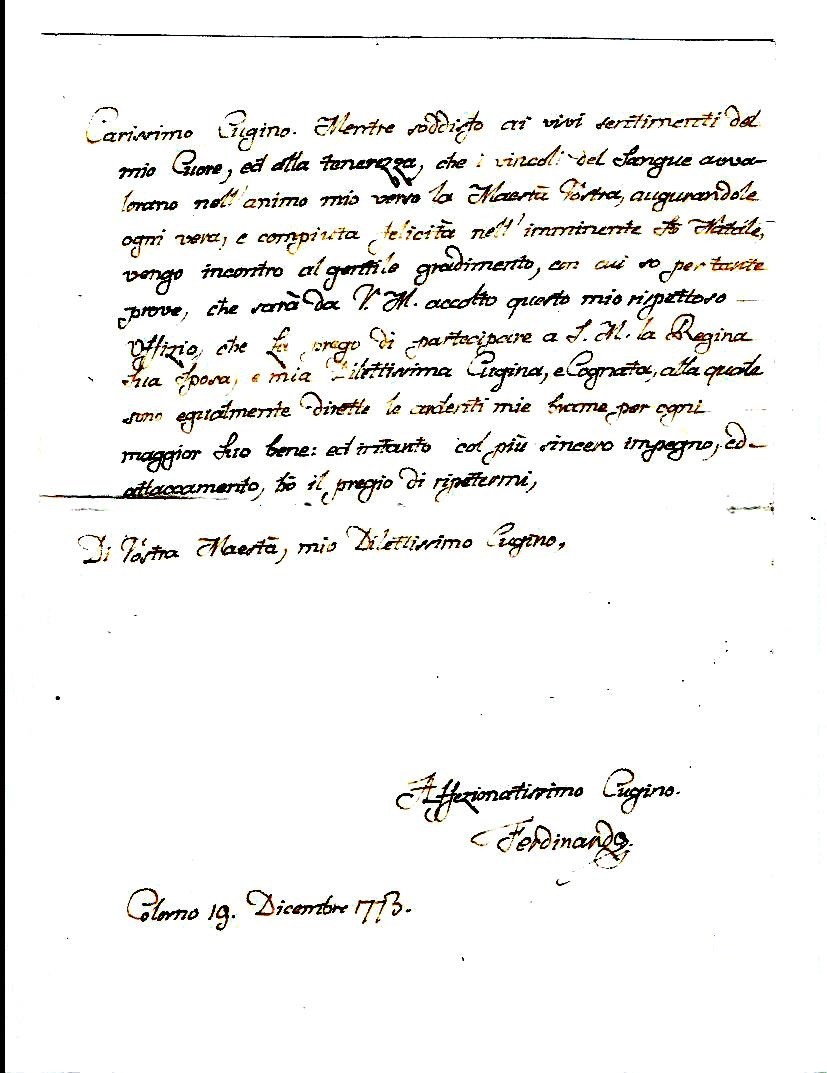 Carissimo Cugino. Mentre soddisfo ai vivi sentimenti del
mio Cuore, ed alla tenerezza, che i vincoli del Sangue avva-
lorano nell'animo mio verso la Maestà Vostra, augurandole
ogni vera, e compiuta felicità nell'imminente Sto Natale,
vengo incontro al gentile gradimento, con cui so per tante
prove, che sarà da V. M. accolto questo mio rispettoso
Uffizio, che La prego di partecipare a S. M. la Regina
Sua Sposa, e mia Dilettissima Cugina, e Cognata, alla quale
sono egualmente dirette le ardenti mie brame per ogni
maggior Suo bene: ed intanto col più sincero impegno, ed
attaccamento, hò il pregio di ripetermi,
Di Vostra Maestà, mio Dilettissimo Cugino,
Affezionatissimo Cugino.
Ferdinando.
Colorno 19. Dicembre 1773.